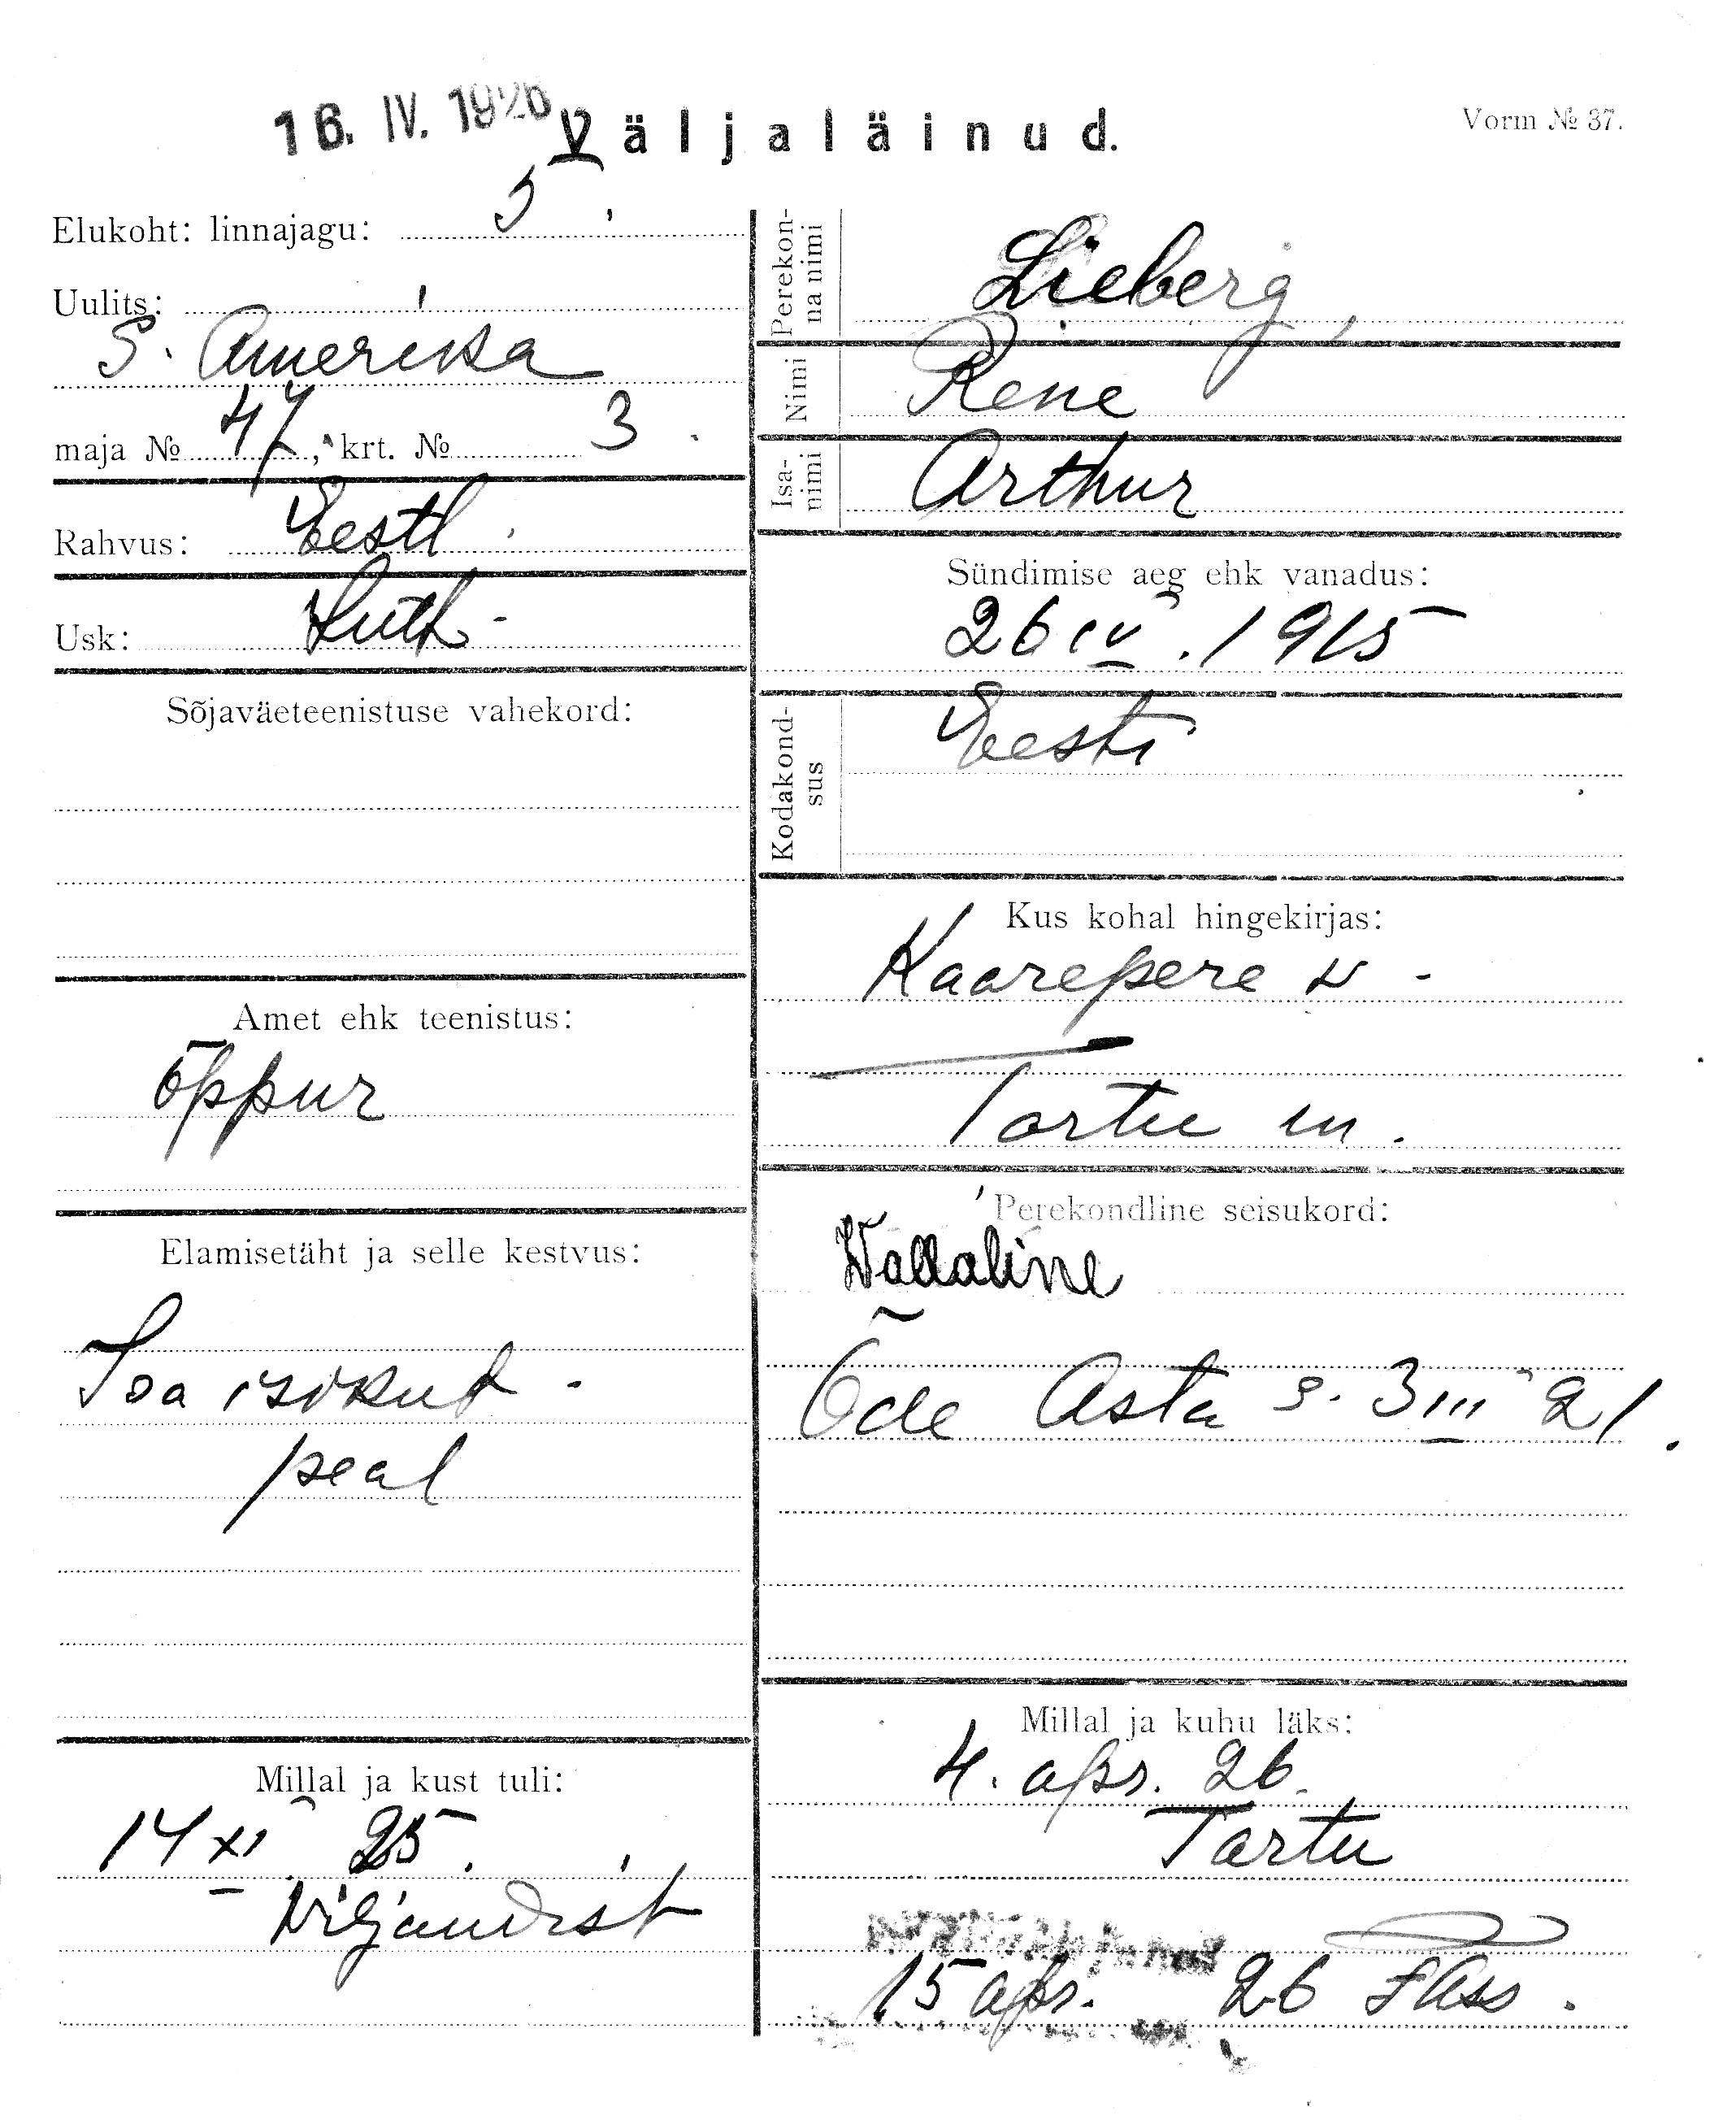 16. IV. 1926
Väljaläinud.
Vorm № 37.
Elukoht: linnajagu: 5
Uulits:
S. Amerika
maja № 47, krt. № 3.
Rahvus: Eesti
Usk: Luth.
Sõjaväeteenistuse vahekord:
Amet ehk teenistus:
õppur
Elamisetäht ja selle kestvus:
Isa isikut.
peal
Millal ja kust tuli:
14 XI 25.
Viljandist
Perekonna nimi
Lieberg,
Nimi
Rene
Isanimi
Arthur
Sündimise aeg ehk vanadus:
26 IV. 1915
Kodakondsus
Eesti
Kus kohal hingekirjas:
Kaarepere v -
Tartu m.
Perekondline seisukord:
Wallaline
Õde Asta s. 3 III 21.
Millal ja kuhu läks:
4. apr. 26.
Tartu
15 apr. 26